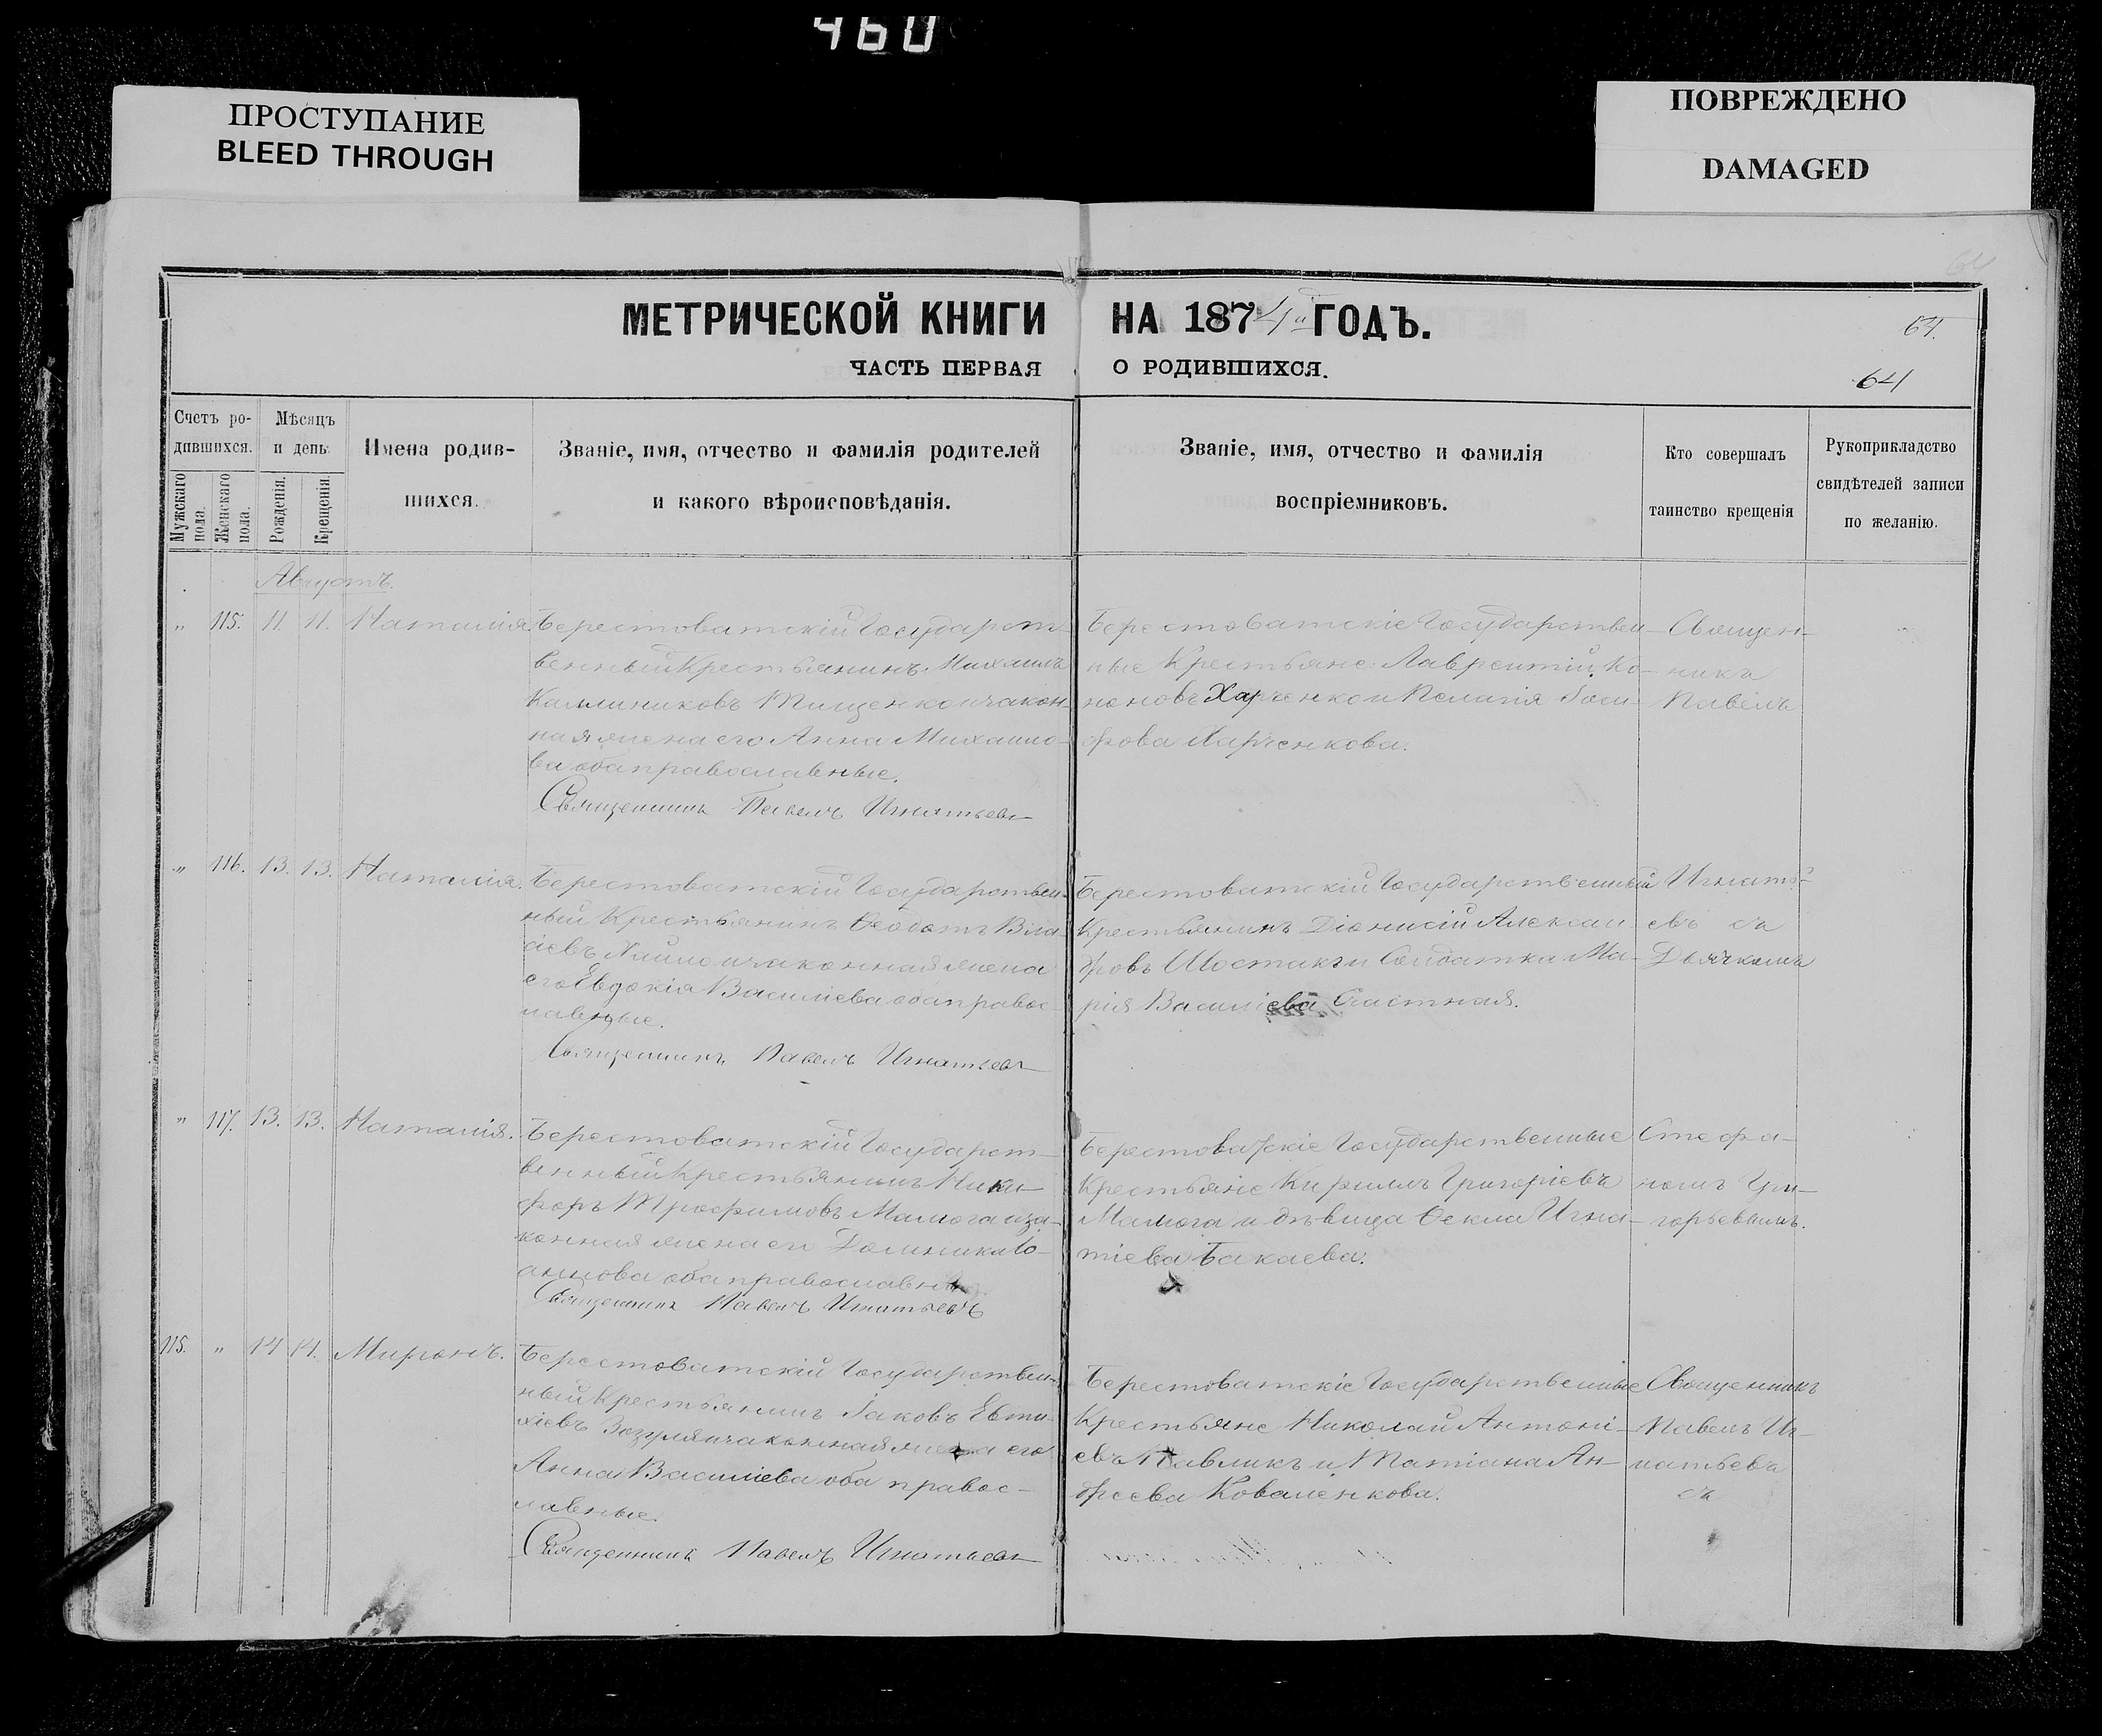 460
ПРОСТУПАНИЕ
BLEED THROUGH
ПОВРЕЖДЕНО
DAMAGED
МЕТРИЧЕСКОЙ КНИГИ НА 1874й ГОДЪ.
64.
ЧАСТЬ ПЕРВАЯ О РОДИВШИХСЯ.
64
Счетъ родившихся.
Мужскаго пола.
Женскаго пола.
Мѣсяцъ и день.
Рожденія.
Крещенія.
Имена родив-
шихся.
Званіе, имя, отчество и фамилія родителей
и какого вѣроисповѣданія.
Званіе, имя, отчество и фамилія
воспріемниковъ.
Кто совершалъ
таинство крещенія
Рукоприкладство
свидѣтелей записи
по желанію.
Августъ.
„ 115. 11. 11. Наталія.
Берестоватскій Государст-
венный Крестьянинъ Михаилъ
Каллиниковъ Тищенко и закон-
ная жена его Анна Михаило-
ва оба православные.
Священникъ Павелъ Игнатьевъ
Берестоватскіе Государствен-
ные Крестьяне Лаврентій Ко-
ноновъ Харченко и Пелагія
Харченкова.
Священ-
никъ
Павелъ
„ 116. 13. 13. Наталія.
Берестоватскій Государствен-
ный Крестьянинъ Ѳеодотъ Вла-
сіевъ и законная жена
его Евдокія Василіева оба правос-
лавные.
Священникъ Павелъ Игнатьевъ
Берестоватскій Государственный
Крестьянинъ Діонисій Алексан
дровъ Шостакъ и Солдатка Ма-
рія Василіева Счастная.
Игнать-
евъ съ
Дьячкомъ
„ 117. 13. 13. Наталія.
Берестоватскій Государст-
венный Крестьянинъ Ники-
форъ Трофимовъ Малюга и за-
конная жена его Домника Іо-
аннова оба православные
Священникъ Павелъ Игнатьевъ
Берестоватскіе Государственные
Крестьяне Кириллъ Григоріевъ
Малюга и дѣвица Ѳекла Игна-
тіева Бакаева.
Стефа-
номъ Гри-
горьевымъ.
115. „ 14 14. Миронъ.
Берестоватскій Государствен-
ный Крестьянинъ Іаковъ Евти-
хіевъ Зозуля и законная жена его
Анна Василіева оба правос-
лавные.
Священникъ Павелъ Игнатьевъ
Берестоватскіе Государственные
Крестьяне Николай Антоні-
евъ Павликъ и Татіана Ан-
дреева Коваленкова.
Священникъ
Павелъ Иг-
натьевъ
съ